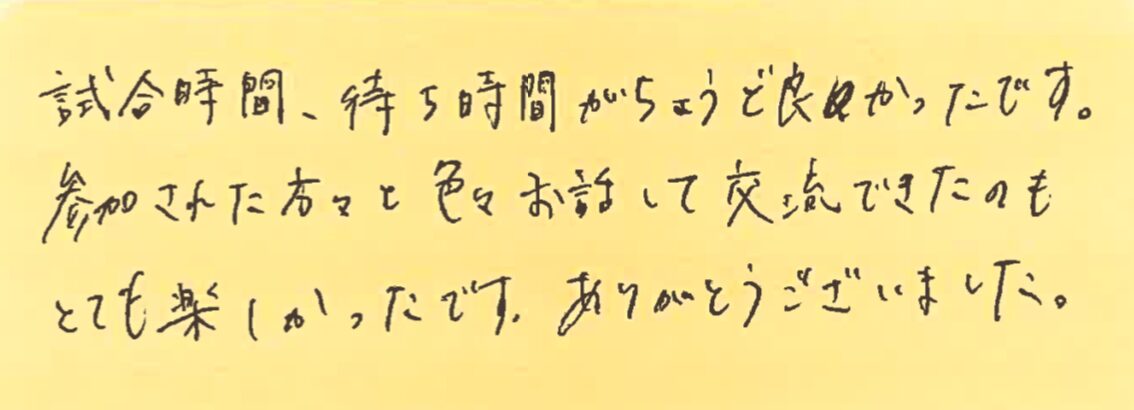 試合時間、待ち時間がちょうど良かったです。
参加された方々と色々お話して交流できたのも
とても楽しかったです。ありがとうございました。